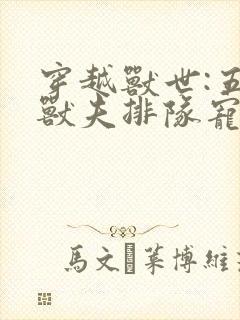 穿越獸世:五
獸夫排隊寵
馬文�萊博維